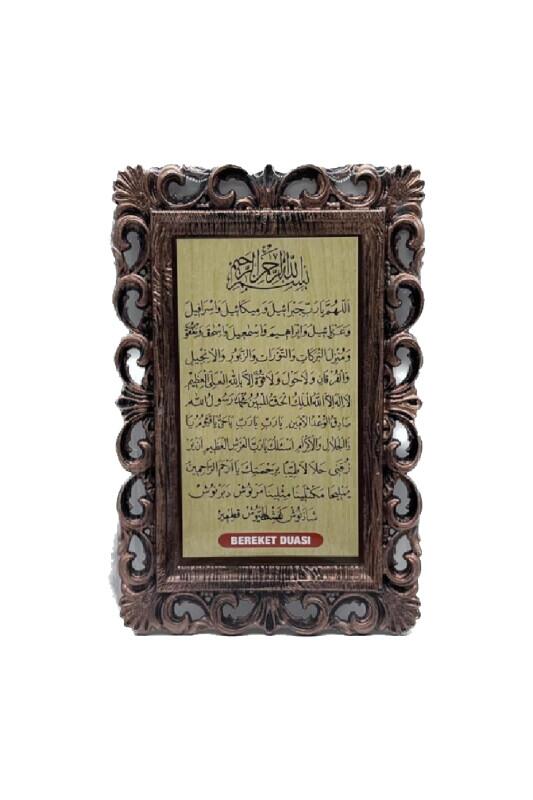 بسم الله الرحمن الرحيم
اللهم يا رب جبرائيل و ميكائيل و اسرافيل
و عزرائيل و ابراهيم و اسمعيل و اسحق و يعقوب
و منزل البركات والتورات والزبور والانجيل
والفرقان ولا حول ولا قوة الا بالله العلي العظيم
لا اله الا الله الملك الحق المبين محمد رسول الله
صادق الوعد الامين يا رب يا رب يا حي يا قيوم يا
ذا الجلال والاكرام اسئلك يا رب العرش العظيم ان
رزقني حلالا طيبا برحمتك يا ارحم الراحمين
يمليخا مكثلينا مثلينا مرنوش دبرنوش
شاذنوش قطمير
BEREKET DUASI